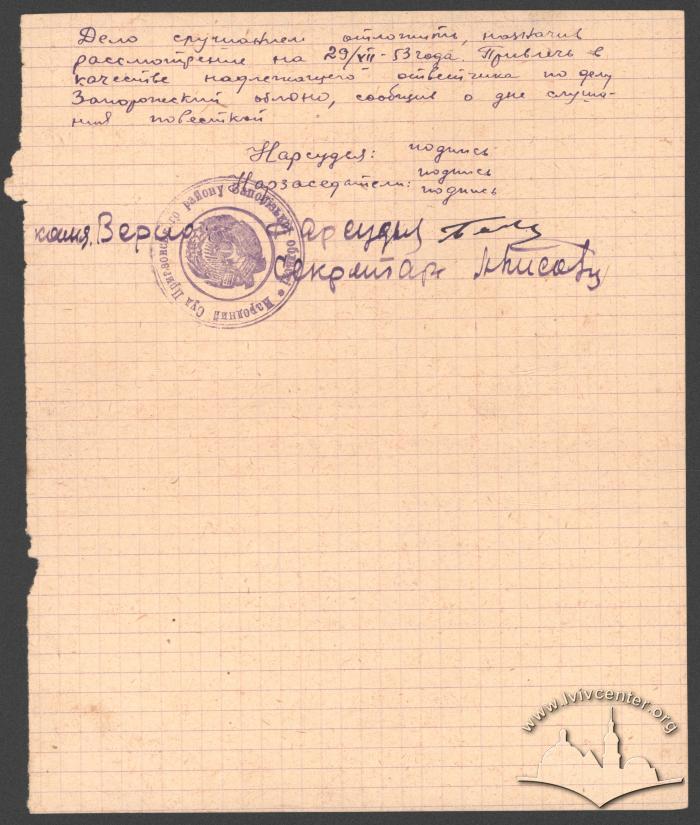 Дело слушанием отложить, назначив
рассмотрение на 29/XII-53 года. Привлечь в
качестве надлежащего ответчика по делу
Запорожский облоно, сообщив о дне слуша-
ния повесткой
Нарсудья: подпись
Нарзаседатели: подпись
подпись
копия Верна Нарсудья
Секретарь
Народний Суд Приазовского району Запорізької області
www.lvivcenter.org